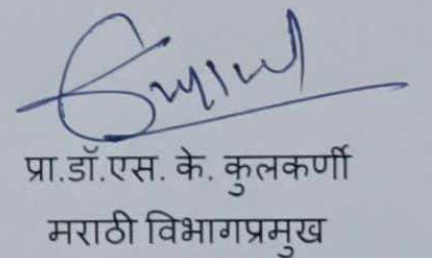 प्रा.डॉ.एस. के. कुलकर्णी
मराठी विभागप्रमुख